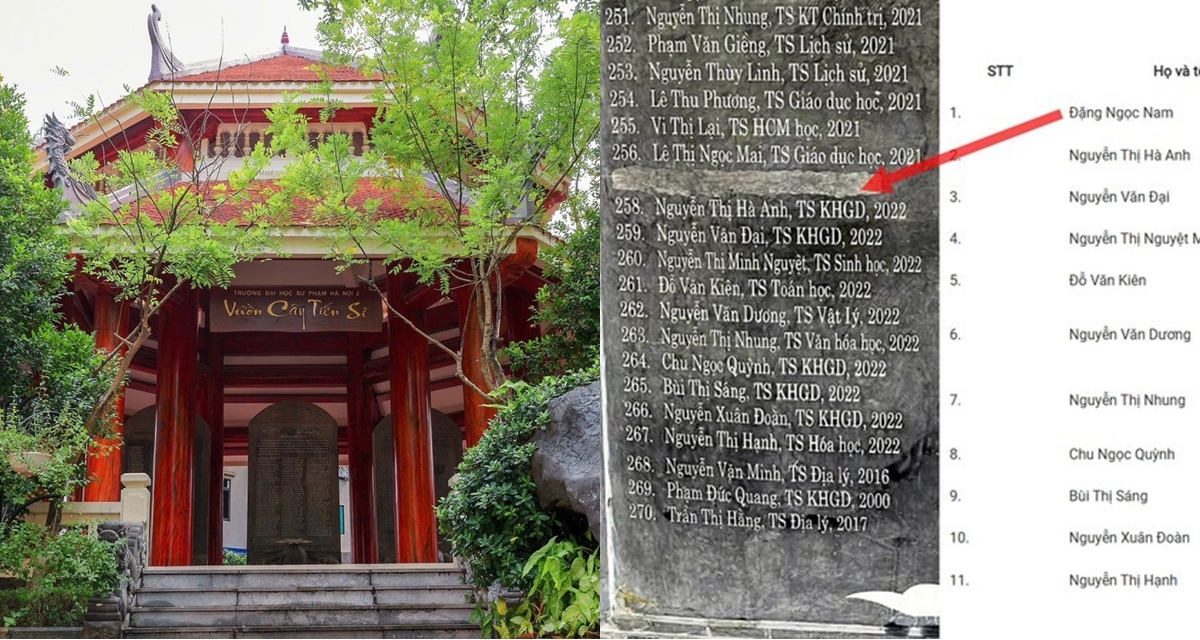 TRƯỜNG ĐẠI HỌC SƯ PHẠM HÀ NỘI 2
Vườn Cây Tiến Sĩ
251. Nguyễn Thị Nhung, TS KT Chính trị, 2021
252. Phạm Văn Giềng, TS Lịch sử, 2021
253. Nguyễn Thùy Linh, TS Lịch sử, 2021
254. Lê Thu Phương, TS Giáo dục học, 2021
255. Vi Thị Lại, TS HCM học, 2021
256. Lê Thị Ngọc Mai, TS Giáo dục học, 2021
258. Nguyễn Thị Hà Anh, TS KHGD, 2022
259. Nguyễn Văn Đại, TS KHGD, 2022
260. Nguyễn Thị Minh Nguyệt, TS Sinh học, 2022
261. Đỗ Văn Kiên, TS Toán học, 2022
262. Nguyễn Văn Dương, TS Vật Lý, 2022
263. Nguyễn Thị Nhung, TS Văn hóa học, 2022
264. Chu Ngọc Quỳnh, TS KHGD, 2022
265. Bùi Thị Sáng, TS KHGD, 2022
266. Nguyễn Xuân Đoàn, TS KHGD, 2022
267. Nguyễn Thị Hạnh, TS Hóa học, 2022
268. Nguyễn Vận Minh, TS Địa lý, 2016
269. Phạm Đức Quang, TS KHGD, 2000
270. Trần Thị Hằng, TS Địa lý, 2017
STT Họ và tê
1. Đặng Ngọc Nam
2. Nguyễn Thị Hà Anh
3. Nguyễn Văn Đại
4. Nguyễn Thị Nguyệt M
5. Đỗ Văn Kiên
6. Nguyễn Văn Dương
7. Nguyễn Thị Nhung
8. Chu Ngọc Quỳnh
9. Bùi Thị Sáng
10. Nguyễn Xuân Đoàn
11. Nguyễn Thị Hạnh